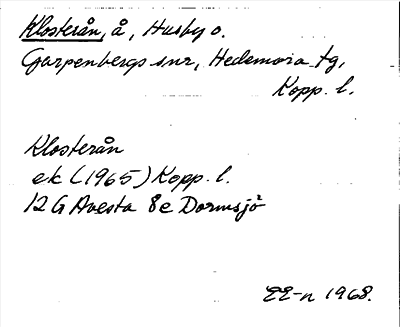 Klosterån, å, Husby o.
Garpenbergs snr, Hedemora tg,
Kopp. l.
Klosterån
ek (1965) Kopp. l.
12 G Avesta 8e Dormsjö
EE-n 1968.